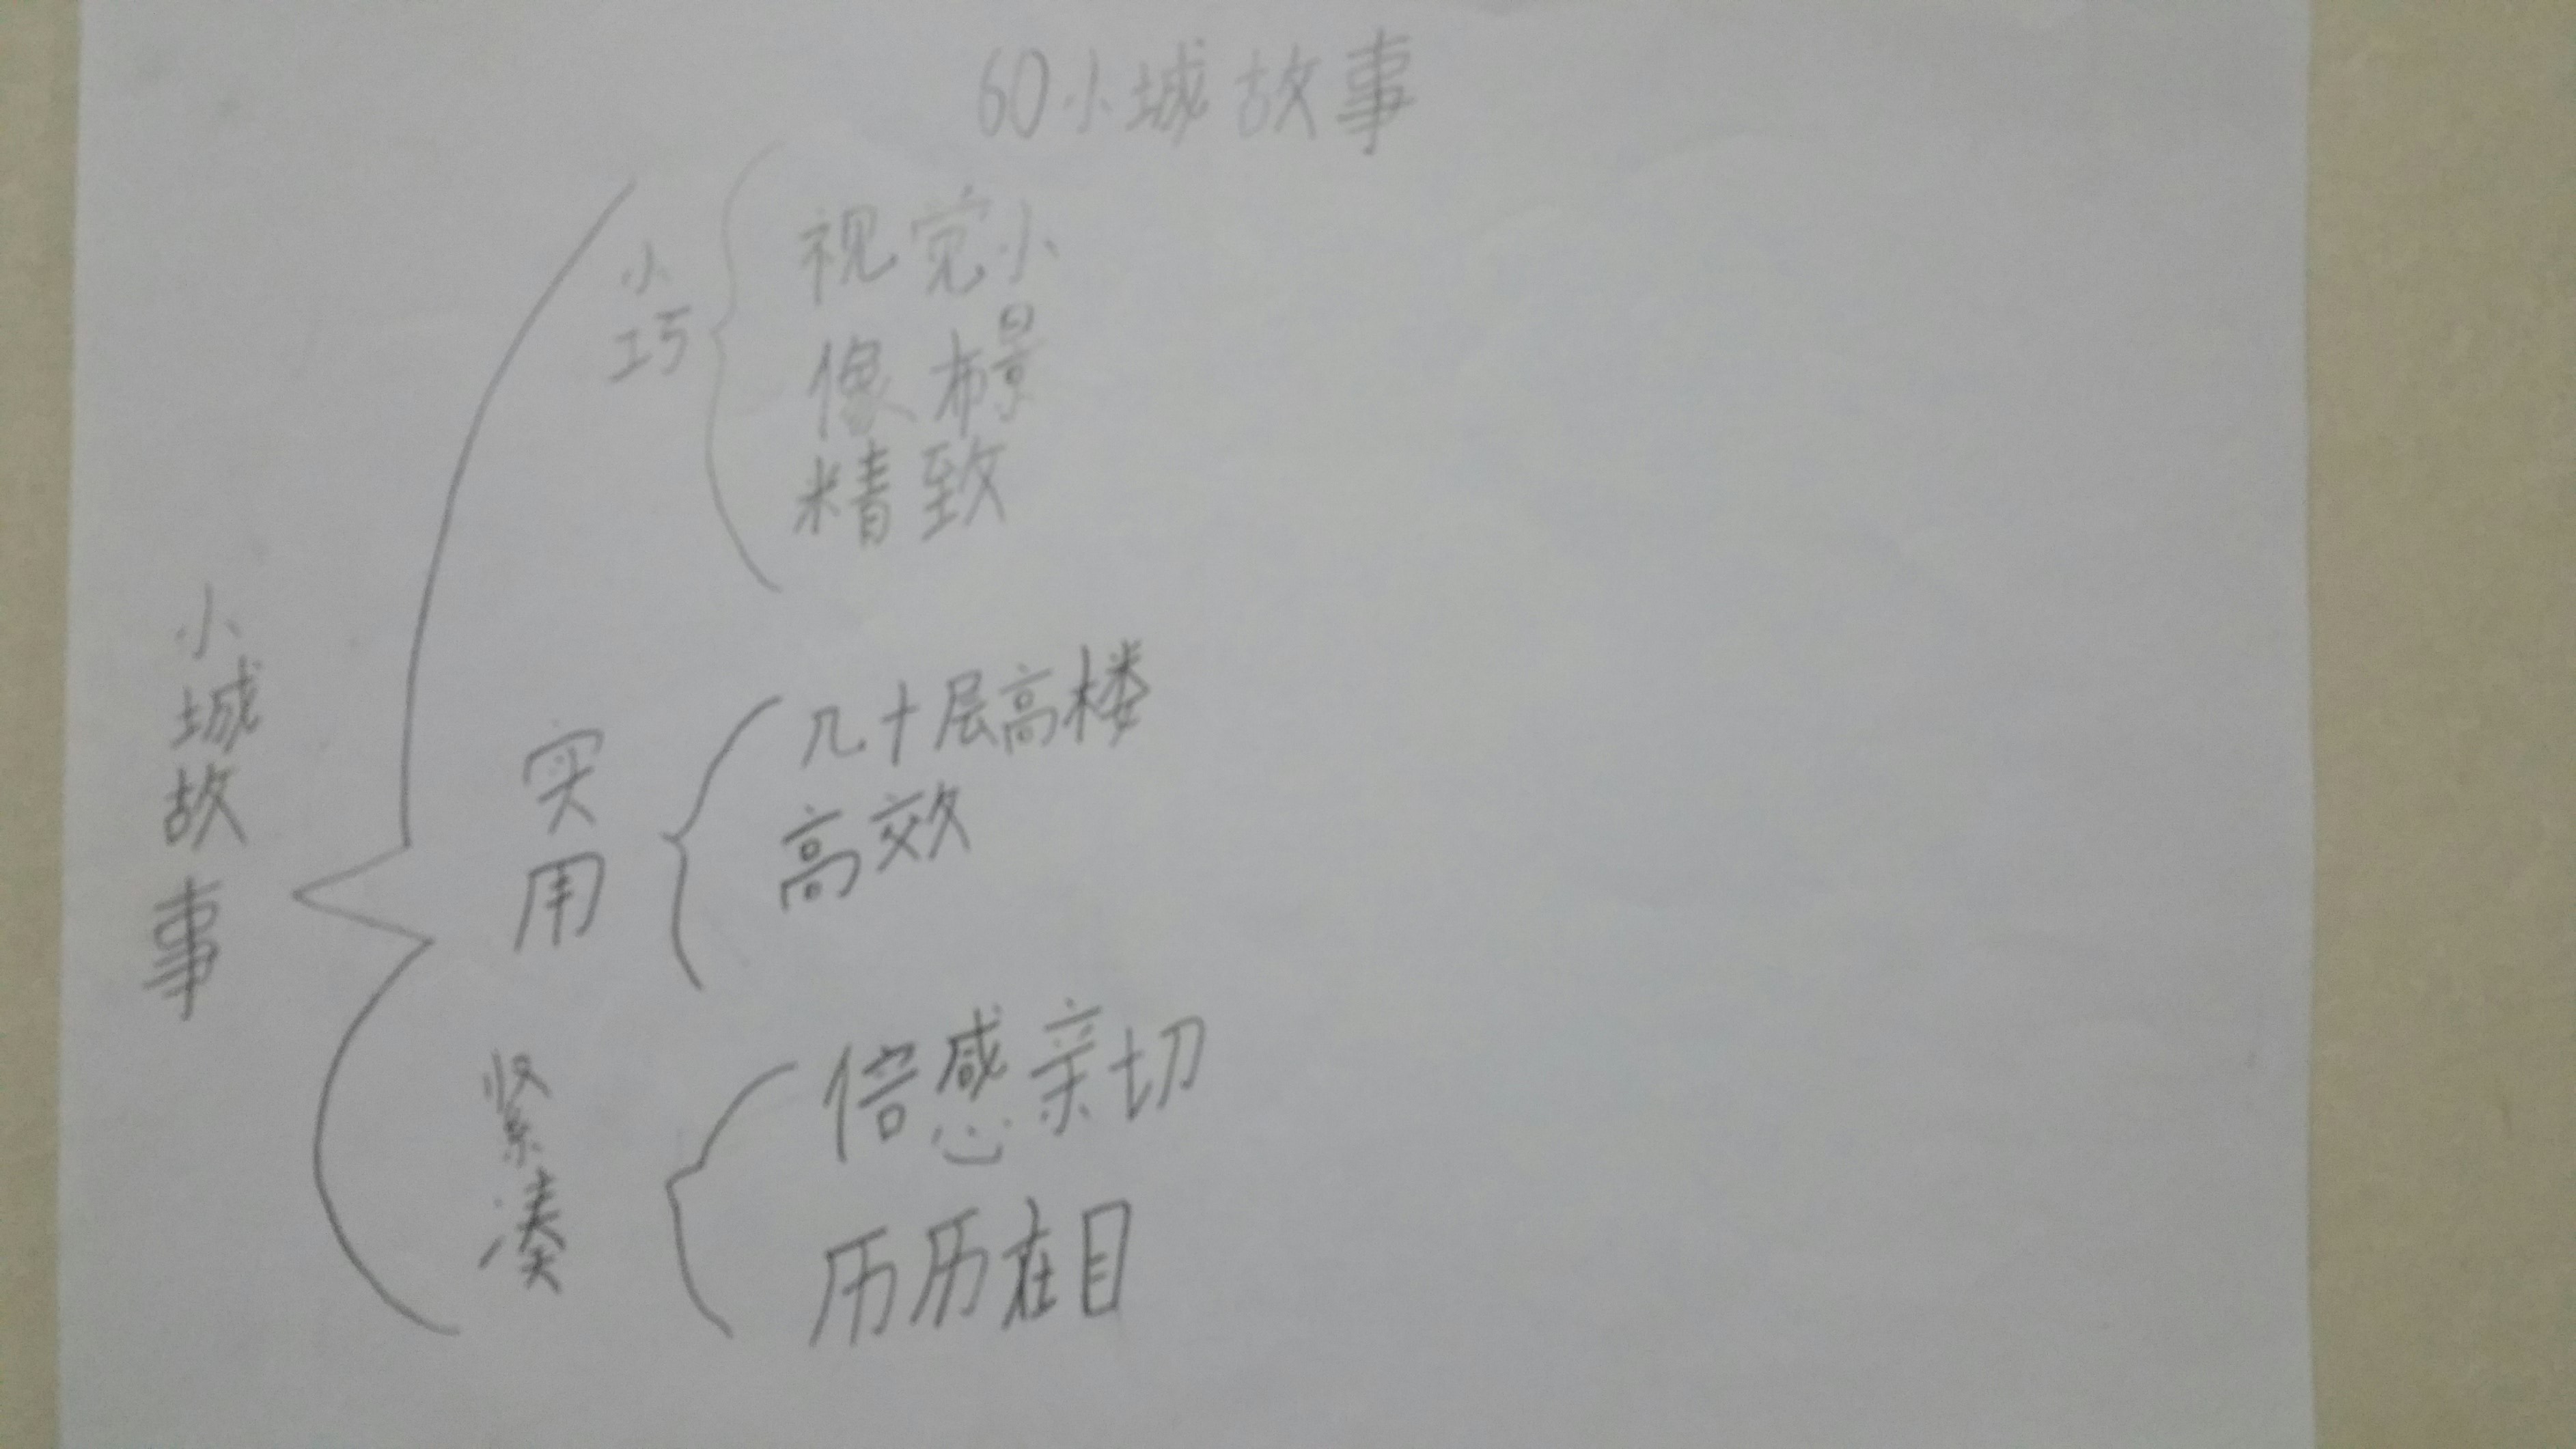 60小城故事
小城故事
小巧
视觉小
像布景
精致
实用
几十层高楼
高效
紧凑
倍感亲切
历历在目